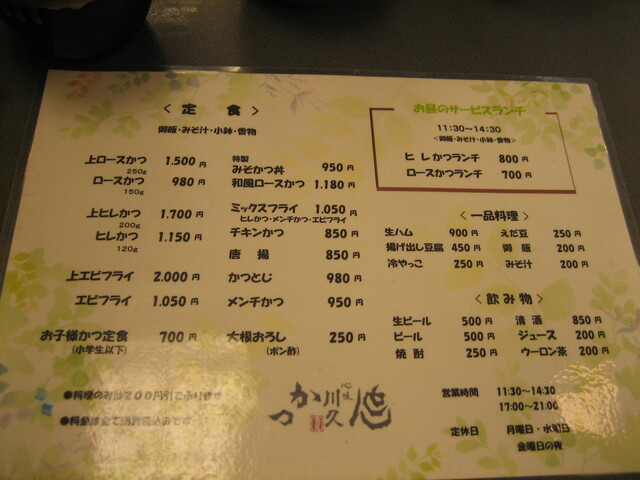 〈 定 食 〉
御飯・みそ汁・小鉢・香物
上ロースかつ 1.500 円
250g
ロースかつ 980 円
150g
上ヒレかつ 1.700 円
200g
ヒレかつ 1.150 円
120g
上エビフライ 2.000 円
エビフライ 1.050 円
お子様かつ定食 700 円
(小学生以下)
特製
みそかつ丼 950 円
和風ロースかつ 1.180 円
ミックスフライ 1.050 円
ヒレかつ・メンチかつ・エビフライ
チキンかつ 850 円
唐 揚 850 円
かつとじ 980 円
メンチかつ 950 円
大根おろし 250 円
(ポン酢)
お昼のサービスランチ
11:30〜14:30
<御飯・みそ汁・小鉢・香物>
ヒレかつランチ 800 円
ロースかつランチ 700 円
〈 一品料理 〉
生ハム 900 円 えだ豆 250 円
揚げ出し豆腐 450 円 御 飯 200 円
冷やっこ 250 円 みそ汁 200 円
〈 飲み物 〉
生ビール 500 円 清 酒 850 円
ビール 500 円 ジュース 200 円
焼 酎 250 円 ウーロン茶 200 円
営業時間 11:30〜14:30
17:00〜21:00
定休日 月曜日・水曜日
金曜日の夜
●料理のみ
かつ
川久